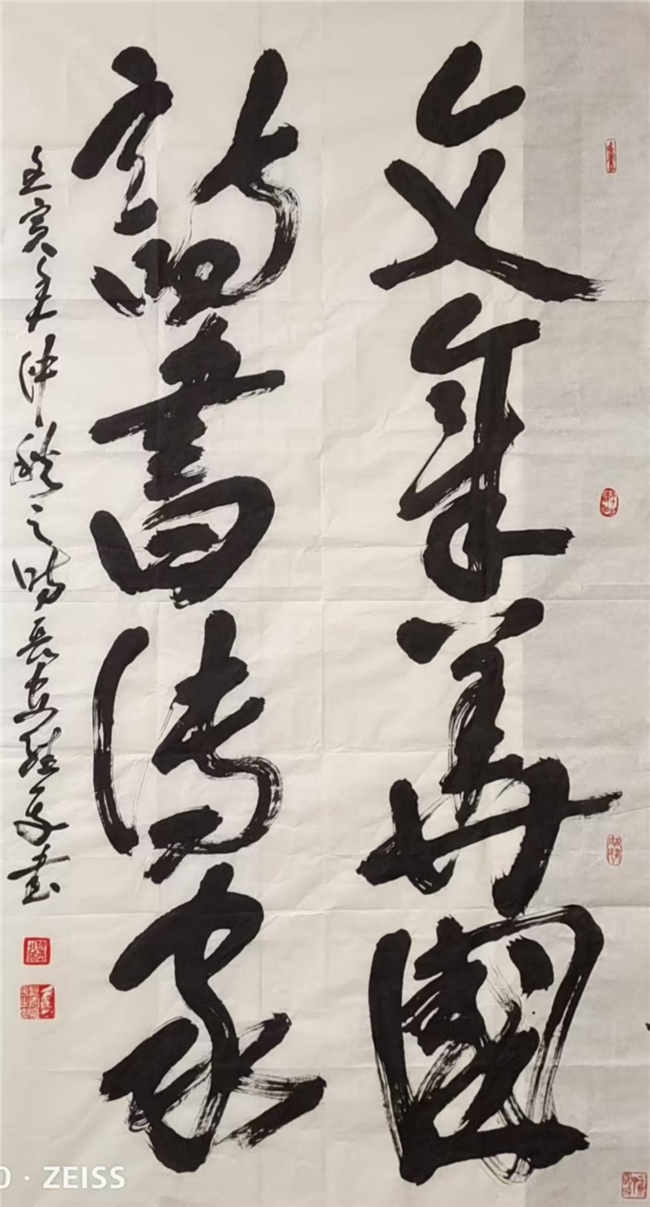 文章華國
詩書傳家
壬寅年仲秋之時長安書
ZEISS